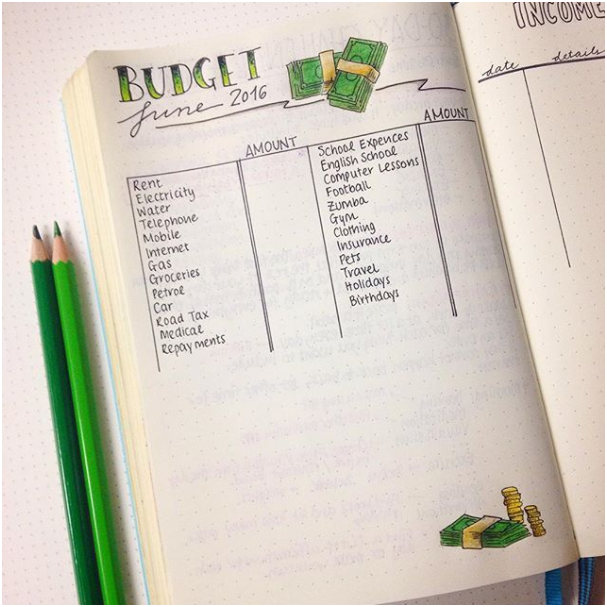 BUDGET
June 2016
AMOUNT
Rent
Electricity
Water
Telephone
Mobile
Internet
Gas
Groceries
Petrol
Car
Road Tax
Medical
Repayments
AMOUNT
School Expences
English School
Computer Lessons
Football
Zumba
Gym
Clothing
Insurance
Pets
Travel
Holidays
Birthdays
INCOME
date details